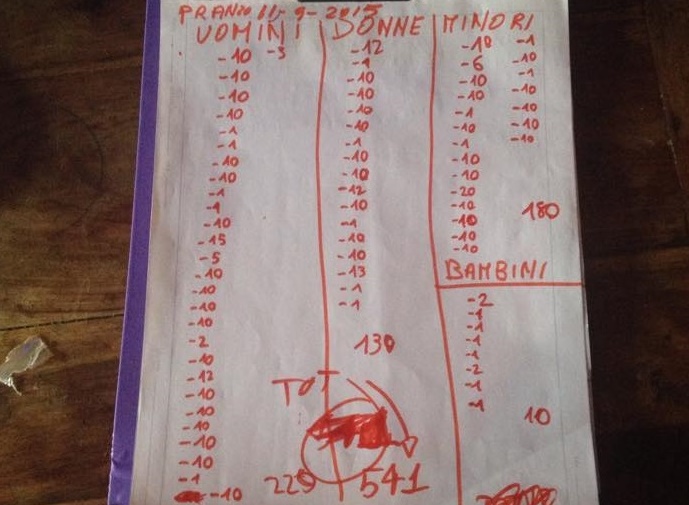 PRANZO 11-9-2015
UOMINI
-10 -3
-10
-10
-10
-1
-1
-10
-10
-1
-1
-10
-15
-5
-10
-10
-10
-10
-2
-10
-12
-10
-10
-10
-10
-10
-1
-10
DONNE
-12
-1
-10
-10
-10
-10
-1
-10
-10
-12
-10
-1
-10
-10
-13
-1
-1
130
TOT
541
MINORI
-10
-6
-10
-10
-1
-10
-1
-10
-10
-20
-10
-10
-10
-10
-1
-10
-1
-10
-10
-10
-10
180
BAMBINI
-2
-1
-1
-1
-2
-1
-1
10